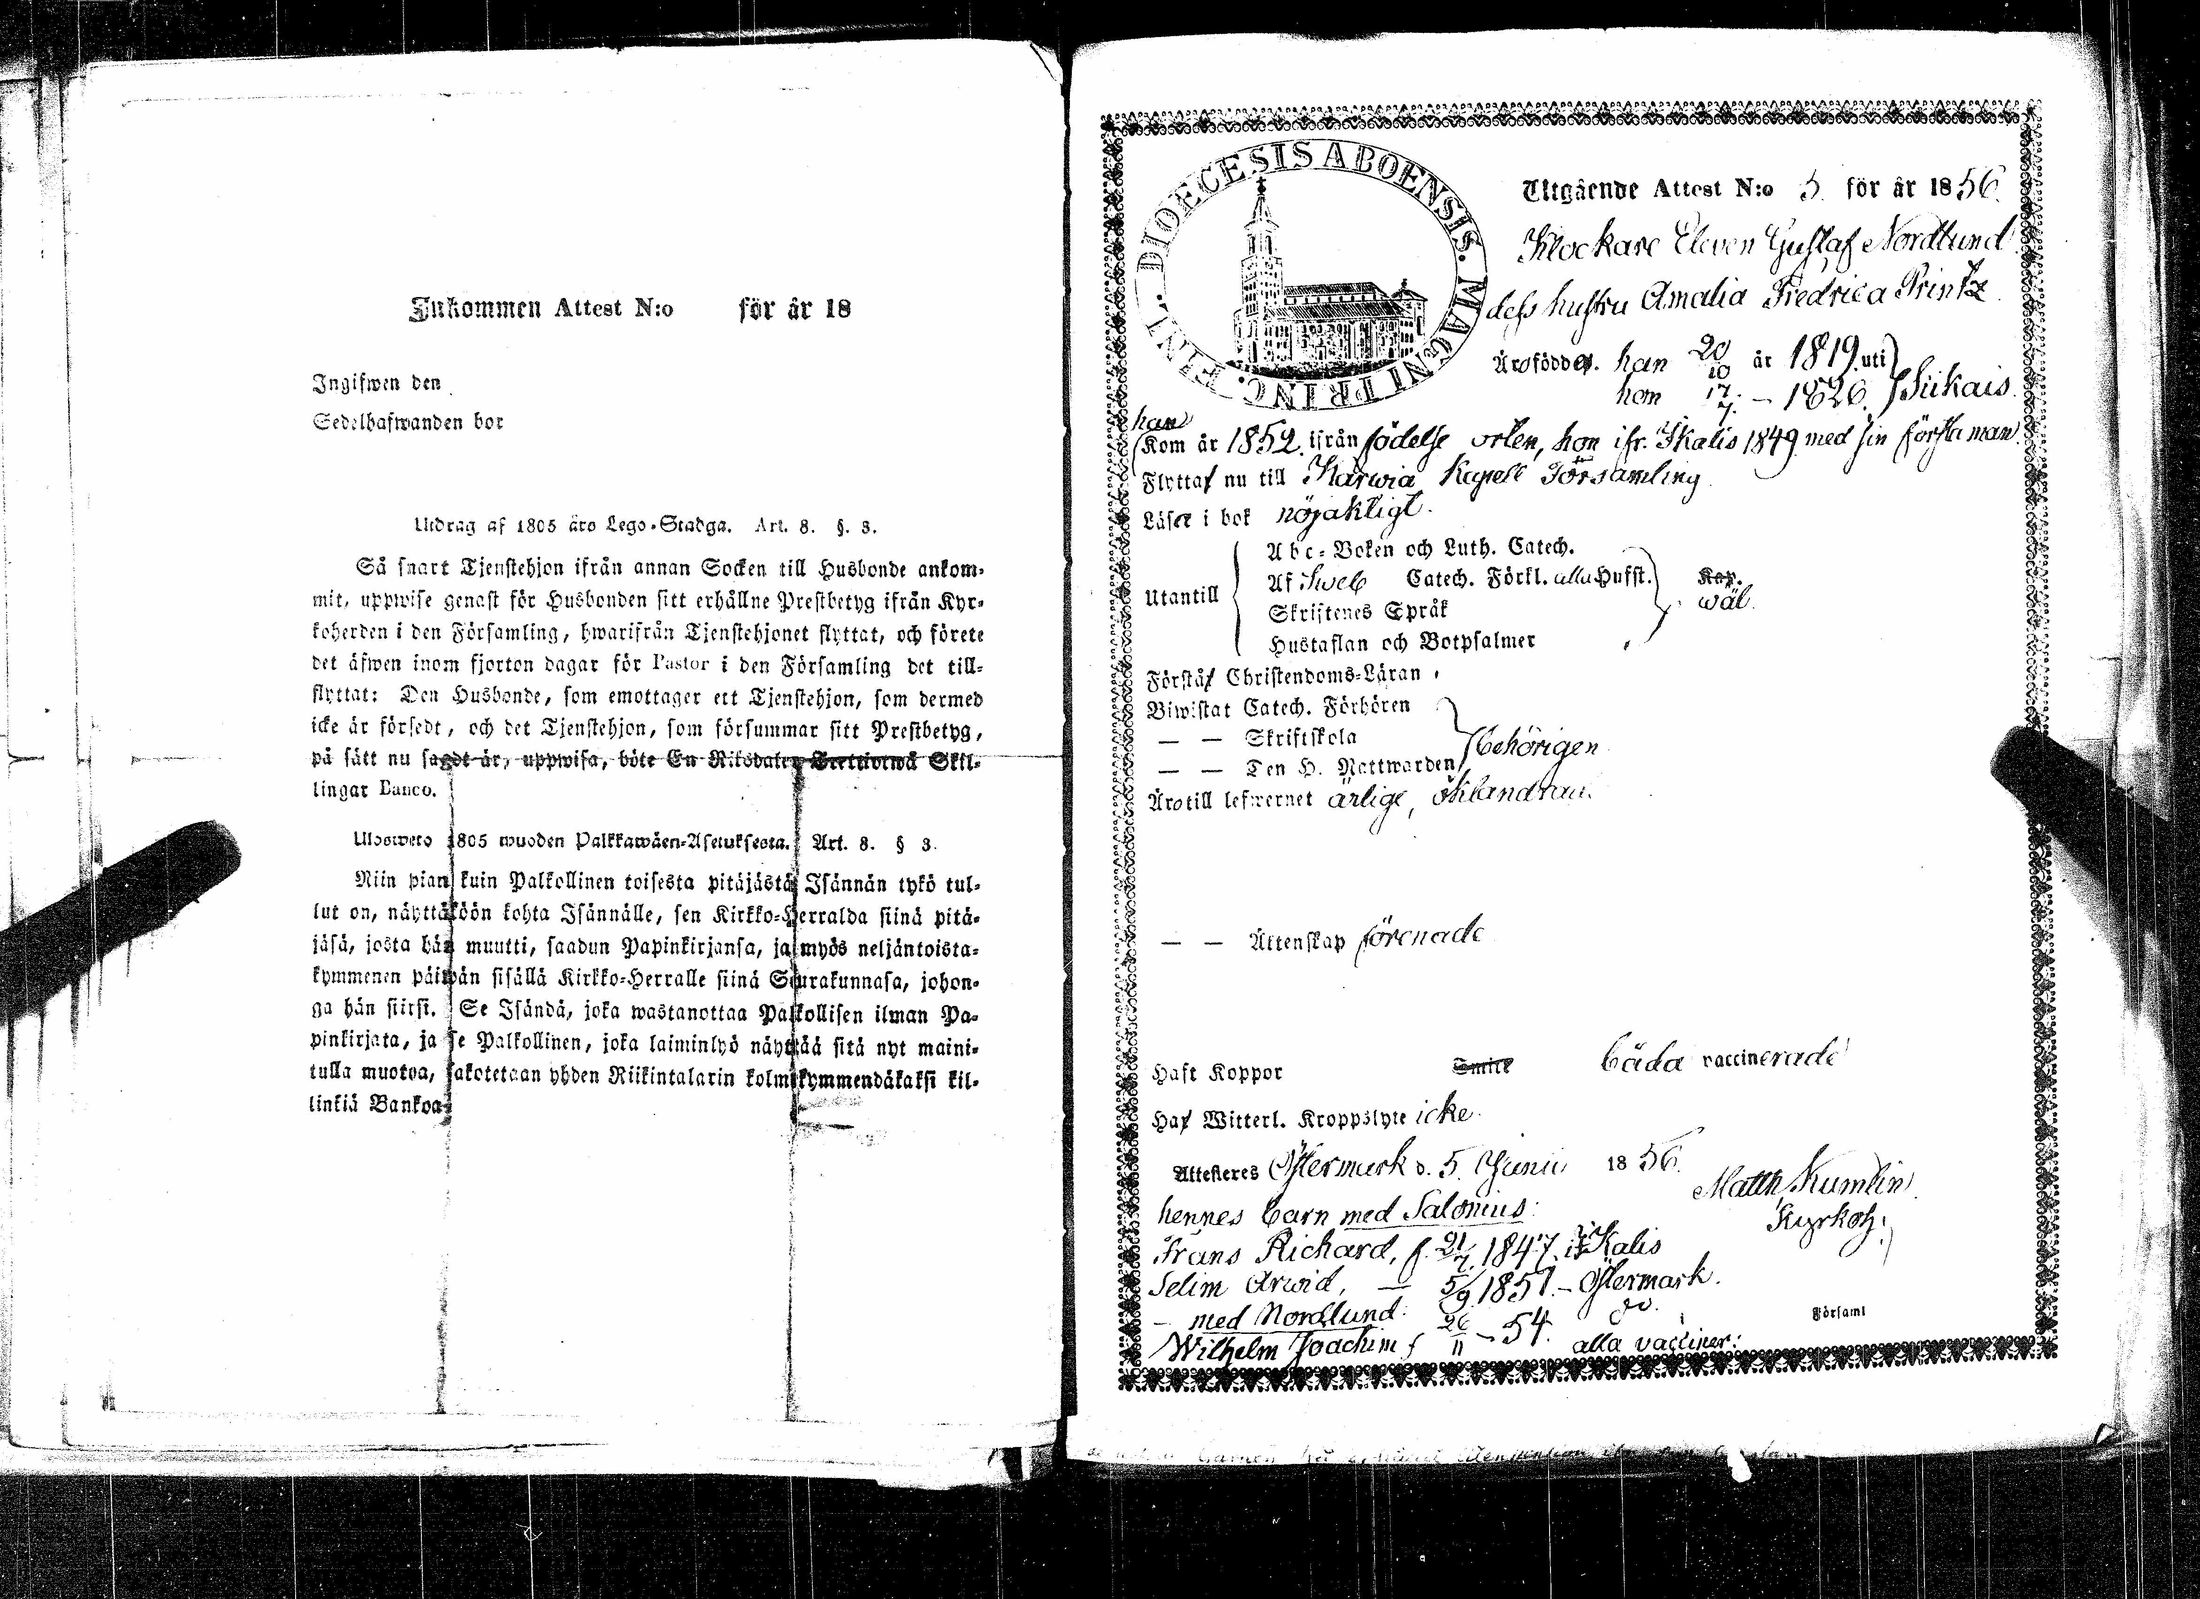 Inkommen Attest N:o för år 18
Ingifwen den
Sedelhafwanden bor
Utdrag af 1805 års Lego-Stadga. Art. 8. §. 3.
Så snart Tjenstehjon ifrån annan Socken till Husbonde ankom-
mit, uppwise genast för Husbonden sitt erhållne Prestbetyg ifrån Kyr-
koherden i den Församling, hwarifrån Tjenstehjonet flyttat, och förete
det äfwen inom fjorton dagar för Pastor i den Församling det till-
flyttat: Den Husbonde, som emottager ett Tjenstehjon, som dermed
icke är försedt, och det Tjenstehjon, som försummar sitt Prestbetyg,
på sätt nu sagdt är, uppwisa, böte En Riksdaler Trettiotwå Skil-
lingar Banco.
Ulosweto 1805 wuoden Palkkawäen-Asetuksesta. Art. 8. § 3.
Niin pian kuin Palkollinen toisesta pitäjästä Isännän tykö tul-
lut on, näyttäköön kohta Isännälle, sen Kirkko-Herralda siinä pitä-
jäsä, josta hän muutti, saadun Papinkirjansa, ja myös neljäntoista-
kymmenen päiwän sisällä Kirkko-Herralle siinä Seurakunnasa, johon-
ga hän siirsi. Se Isändä, joka wastanottaa Palkollisen ilman Pa-
pinkirjata, ja se Palkollinen, joka laiminlyö näyttää sitä nyt maini-
tulla muotoa, sakotetaan yhden Riikintalarin kolmekymmendäkaksi kil-
linkiä Bankoa.
DIOECESIS ABOENSIS. MAGNI PRINC. FINL.
Utgående Attest N:o 5. för år 1856.
Klockare Eleven Gustaf Nordlund
dess hustru Amalia Fredrica Printz
Äro födde. han 20/10 år 1819. uti
hon 17/7. – 1826. Siikais.
han
Kom år 1852. ifrån födelse orten, hon ifr. Ikalis 1849 med sin första man
Flytta nu till Karwia Kapell Församling
Läser i bok nöjaktigt.
Abc-Boken och Luth. Catech.
Utantill Af Sweb Catech. Förkl. alla Hufst. Kap.
wäl.
Skriftenes Språk
Hustaflan och Botpsalmer
Förstå Christendoms-Läran
Biwistat Catech. Förhören
— — Skriftskola behörigen
— — Den H. Nattwarden
Äro till lefwernet ärlige, oklandrade.
— — Äktenskap förenade
Haft Koppor Smitt båda vaccinerade
Haf Witterl. Kroppslyte icke.
Attesteres Östermark d. 5. Junii 1856.
Matth Kumlin
Kyrkoh:
hennes barn med Salonius:
Frans Richard, f. 21/7. 1847. i Ikalis
Selim Arwid, — 5/9. 1851. – Östermark.
– med Nordlund: do.
Församl
Wilhelm Joachim f 26/11 – 54. alla vacciner: